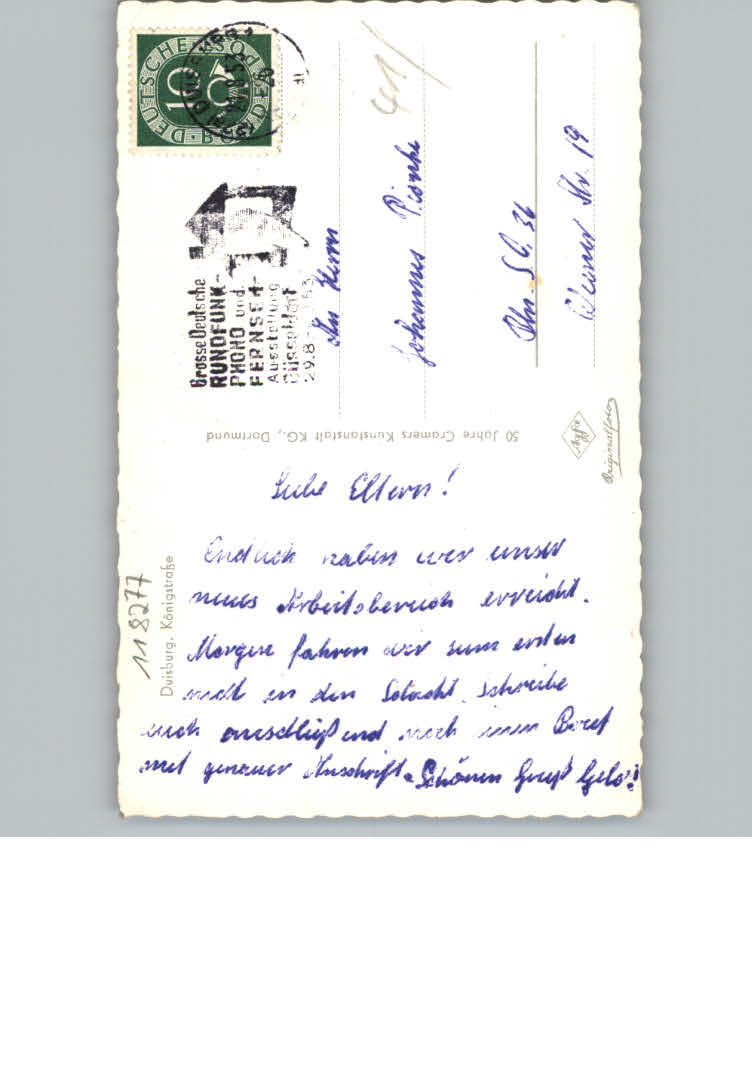 DEUTSCHE BUNDESPOST
10
Grosse Deutsche
RUNDFUNK-
PHONO und
FERNSEH-
Ausstellung
Düsseldorf
29.8.
An Herrn
Johannes
Str. 19
41/
50 Jahre Cramers Kunstanstalt KG., Dortmund
Agfa
Originalfoto
Duisburg, Königstraße
118277
Liebe Eltern!
Endlich haben wir unser
neues Arbeitsbereich erreicht.
Morgen fahren wir zum ersten
mal in den Schacht. Schreibe
euch anschließend noch einen Brief
mit genauer Anschrift. Schönen Gruß